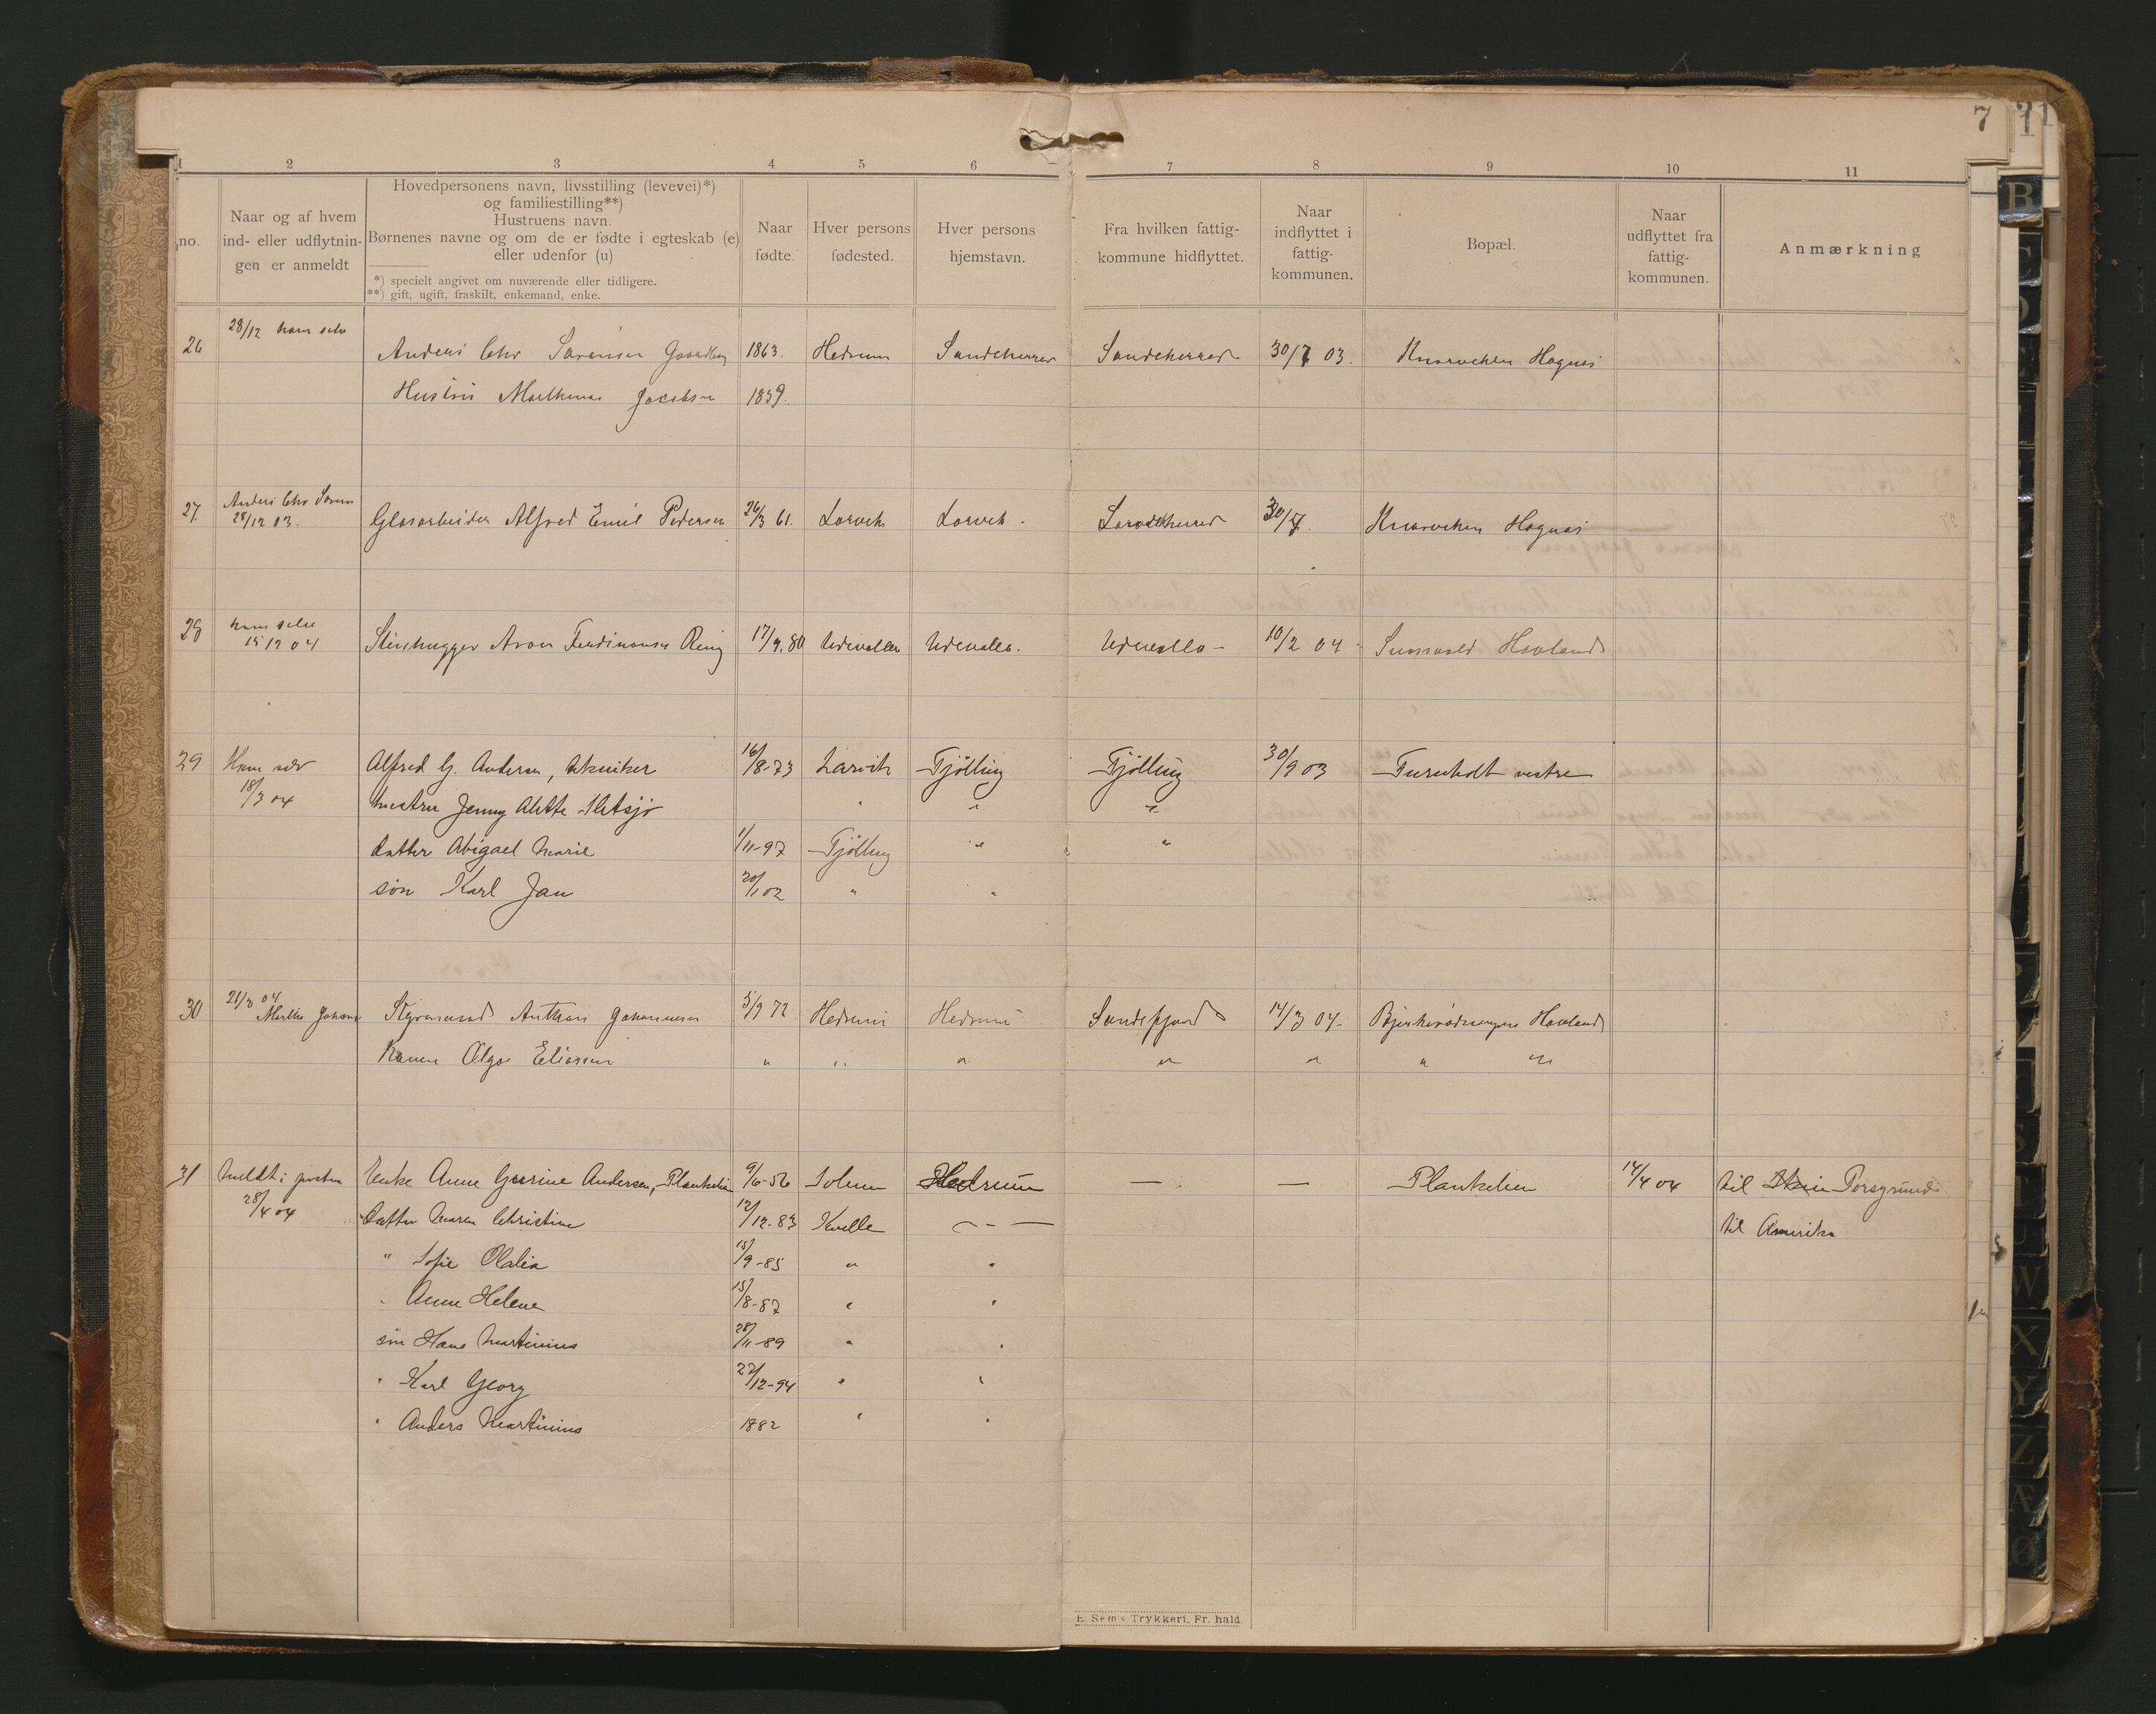 7
1 2 3 4 5 6 7 8 9 10 11
no.
Naar og af hvem
ind- eller udflytnin-
gen er anmeldt
Hovedpersonens navn, livsstilling (levevei)*)
og familiestilling**)
Hustruens navn.
Børnenes navne og om de er fødte i egteskab (e)
eller udenfor (u)
*) specielt angivet om nuværende eller tidligere.
**) gift, ugift, fraskilt, enkemand, enke.
Naar
fødte.
Hver persons
fødested.
Hver persons
hjemstavn.
Fra hvilken fattig-
kommune hidflyttet.
Naar
indflyttet i
fattig-
kommunen.
Bopæl.
Naar
udflyttet fra
fattig-
kommunen.
Anmærkning
28/12 ham selv
26 Anders Chr Sørensen 1863. Hedrum Sandeherred Sandeherred 30/7 03. Hognes
Hustru Mathena Jacobsen 1859.
Anders Chr Søren
27. 28/12 03. Glasarbeider Alfred Emil Pedersen 26/3 61. Larvik Larvik. 30/7. Hognes
ham selv
28 15/2 04 Stenhugger Aron Ferdinansen Ring 17/9.80 Udevalla Udevalla. Udevalla - 10/2 04 Hovland
29 Ham selv Alfred G. Andersen, tekniker 16/8-73 Larvik Tjølling Tjølling 30/9 03 Furuholt vestre
18/3 04 hustru Jenny Alette " " "
datter Abigael Marie 1/11-97 Tjølling " "
søn Karl Jan 20/1 02 " "
21/3 04
30 Styrmand Anthon Johannesen 5/9 72 Hedrum Hedrum Sandefjord 14/3 04. Hovland
Kone Olga Eliassen " " " " " " "
31 Meldt i posten Enke Anne Gurine Andersen, Plankelien 9/6-56 Solum Hedrum — — Plankelien 14/4 04 til Skien Porsgrund
28/4 04 Datter Maren Christine 12/12-83 Kvelle — " — til Amerika
" Sofie Olalia 15/9-85 " "
" Anne Helene 15/8-87 " "
søn Hans Martinius 28/11-89 " "
" Karl Georg 22/12-94 " "
" Anders Martinius 1882 " "
E. Sem's Trykkeri, Fr. hald.
B
C
D
P
R
S
U
W
X
Y
Z
Æ
Ø